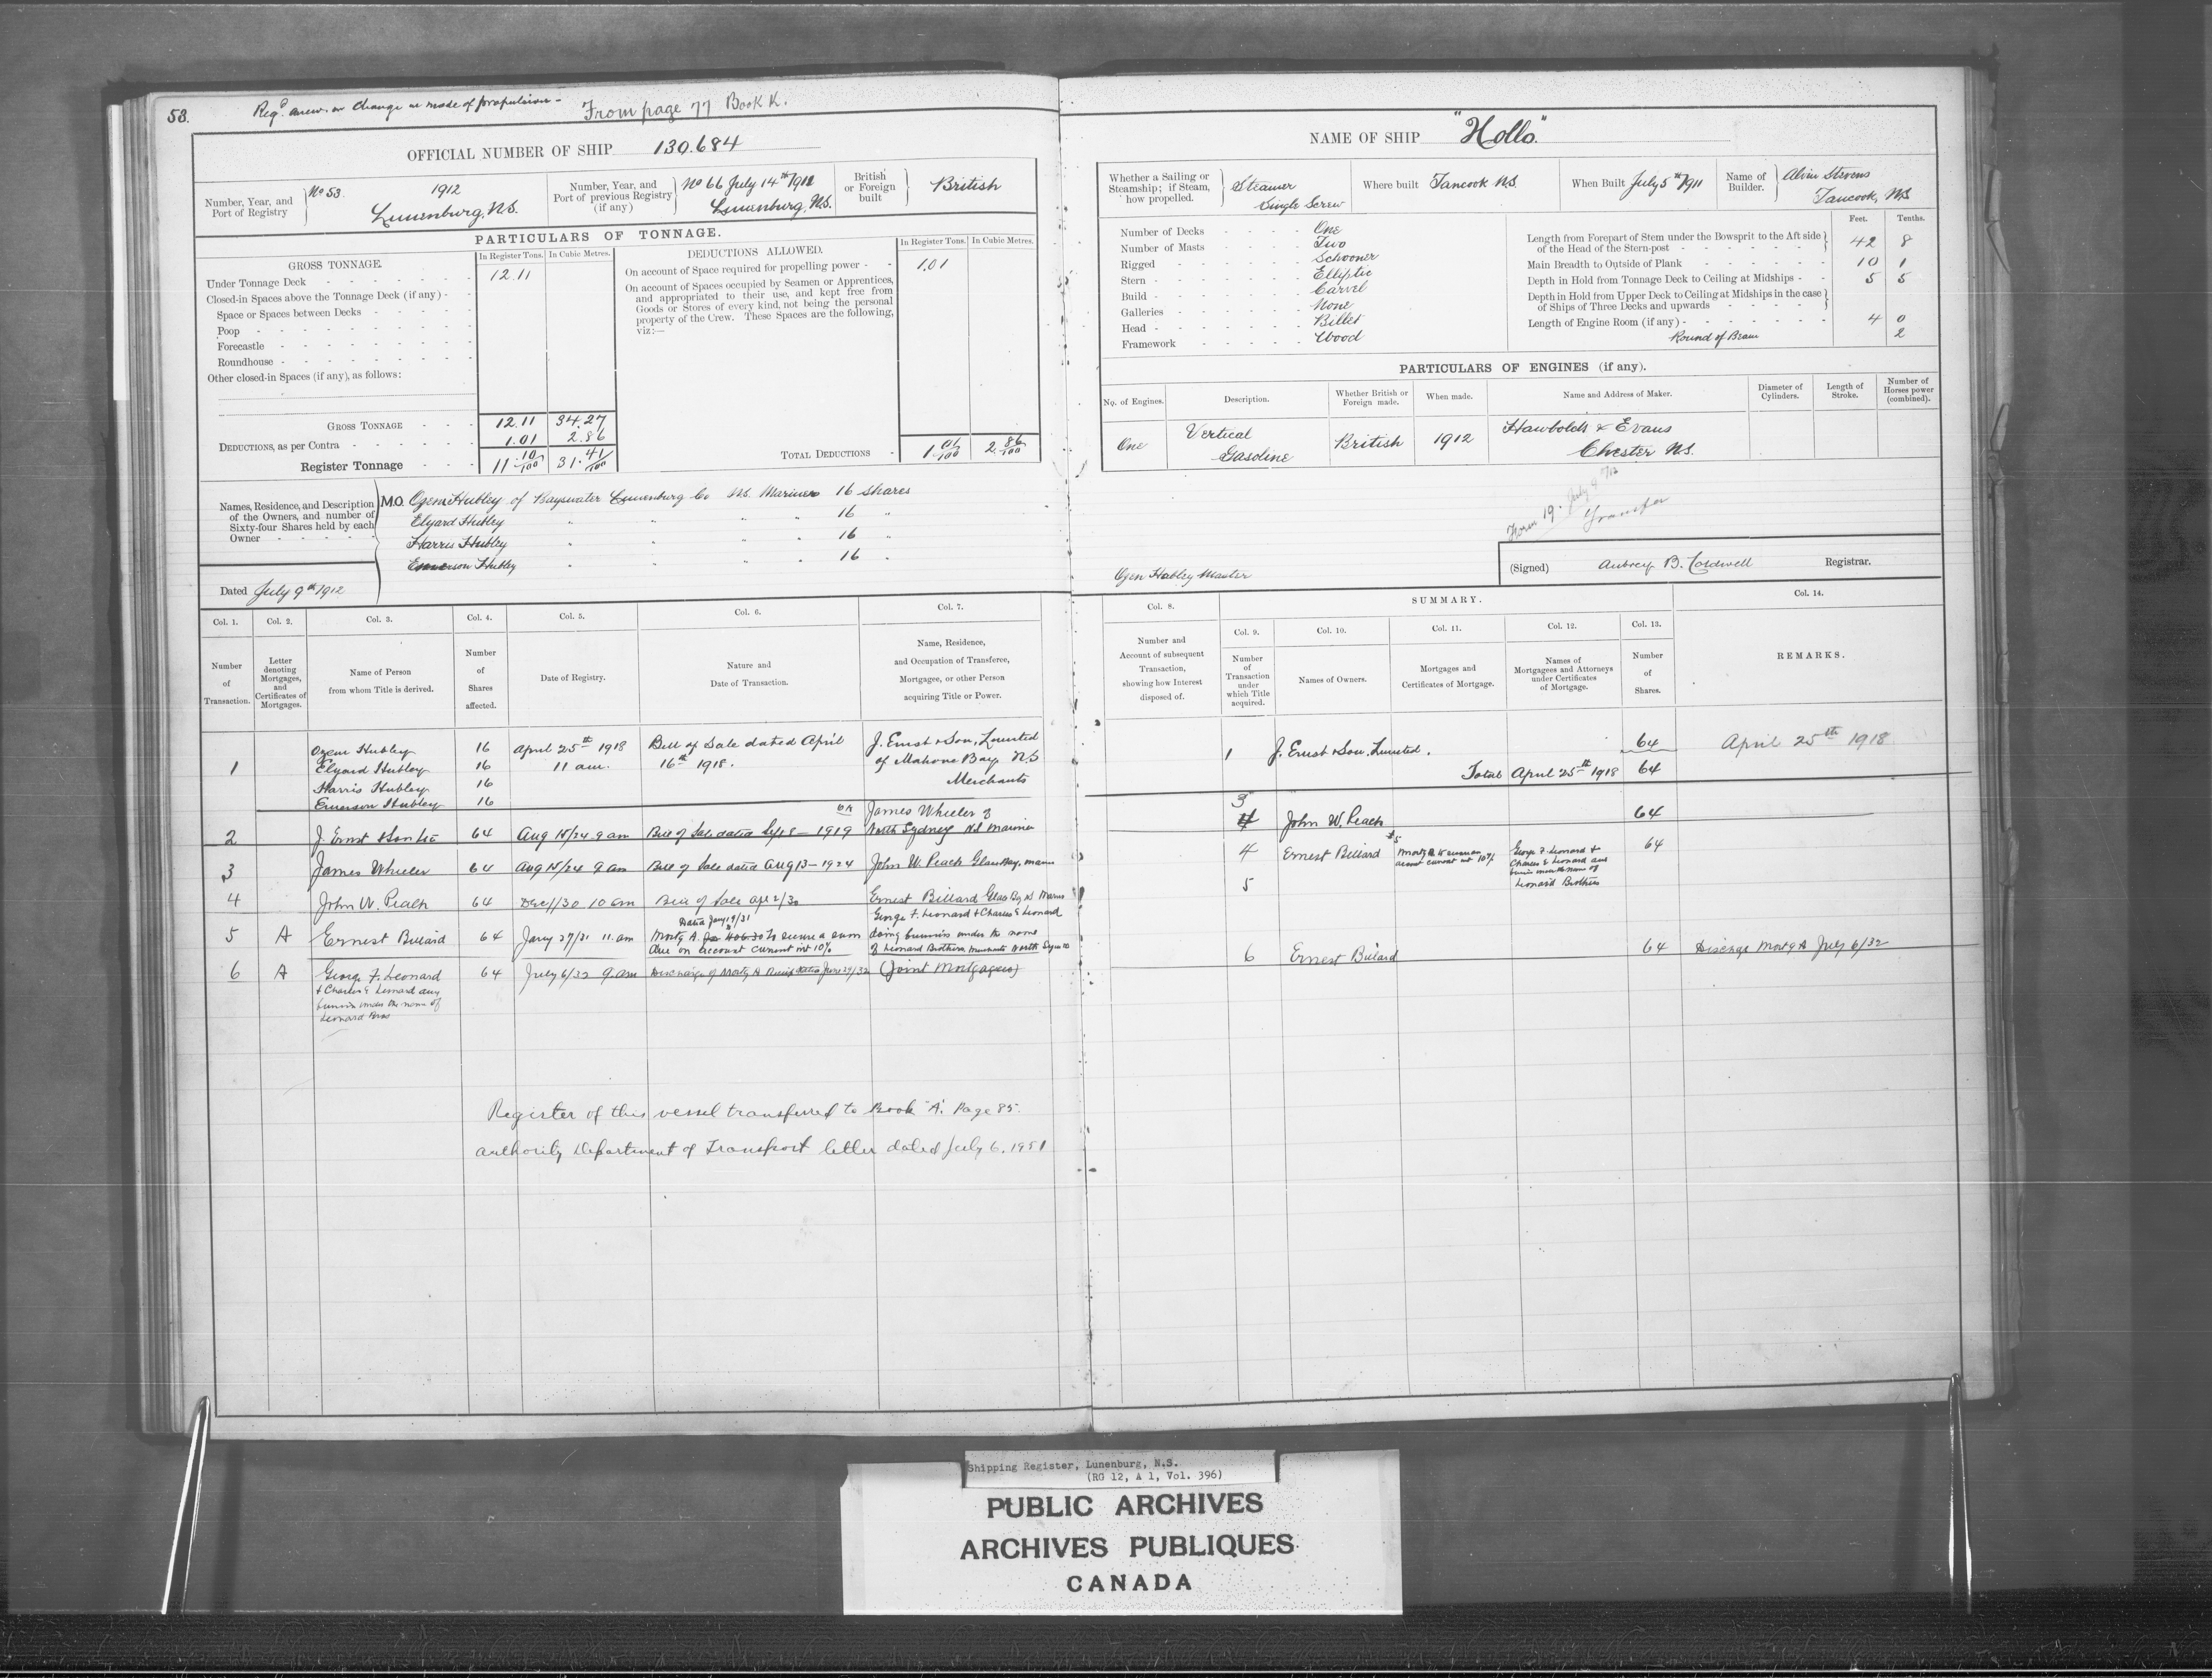 53.
Regd anew on Change in mode of propulsion - From page 77 Book K.
OFFICIAL NUMBER OF SHIP 130.684
Number, Year, and Port of Registry No 53. 1912 Lunenburg, N.S.
Number, Year, and Port of previous Registry (if any) No 66 July 14th 1911 Lunenburg, N.S.
British or Foreign built British
PARTICULARS OF TONNAGE.
GROSS TONNAGE. In Register Tons. In Cubic Metres.
Under Tonnage Deck 12.11
Closed-in Spaces above the Tonnage Deck (if any)
Space or Spaces between Decks
Poop
Forecastle
Roundhouse
Other closed-in Spaces (if any), as follows:
GROSS TONNAGE 12.11 34.27
DEDUCTIONS, as per Contra 1.01 2.86
Register Tonnage 11 10/100 31 41/100
DEDUCTIONS ALLOWED. In Register Tons. In Cubic Metres.
On account of Space required for propelling power 1.01
On account of Spaces occupied by Seamen or Apprentices,
and appropriated to their use, and kept free from
Goods or Stores of every kind, not being the personal
property of the Crew. These Spaces are the following,
viz:—
TOTAL DEDUCTIONS 1 01/100 2 86/100
Names, Residence, and Description
of the Owners, and number of
Sixty-four Shares held by each
Owner
M.O. Ozem Hubley of Bayswater Lunenburg Co N.S. Mariner 16 shares
Elyard Hubley " " " " 16 "
Harris Hubley " " " " 16 "
Emerson Hubley " " " " 16 "
Dated July 9th 1912
Col. 1. Col. 2. Col. 3. Col. 4. Col. 5. Col. 6. Col. 7.
Number of Transaction.
Letter denoting Mortgages, and Certificates of Mortgages.
Name of Person from whom Title is derived.
Number of Shares affected.
Date of Registry.
Nature and Date of Transaction.
Name, Residence, and Occupation of Transferee, Mortgagee, or other Person acquiring Title or Power.
Ozem Hubley 16 April 25th 1918 Bill of Sale dated April J. Ernst & Son, Limited
1 Elyard Hubley 16 11 a.m. 16th 1918. of Mahone Bay N.S
Harris Hubley 16 Merchants
Emerson Hubley 16
James Wheeler of
2 J. Ernst & Son Ltd 64 Aug 15/24 9 am Bill of Sale dated Sept 8 - 1919 North Sydney N.S Mariner
3 James Wheeler 64 Aug 15/24 9 am Bill of Sale dated Aug 13 - 1924 John W. Peach Glace Bay, Mariner
4 John W. Peach 64 Dec 1/30 10 am Bill of Sale Apl 2/30 Ernest Billard Glace Bay N.S Mariner
Dated Jany 19/31 George F. Leonard & Charles E Leonard
5 A Ernest Billard 64 Jany 27/31 11 am Mortg A. to secure a sum doing business under the name
due on account current int 10% of Leonard Brothers, merchants North Sydney
6 A George F. Leonard 64 July 6/32 9 am Discharge of Mortg A dated June 29/32 (Joint Mortgagees)
& Charles E Leonard doing
business under the name of
Leonard Bros
Register of this vessel transferred to Book "A". Page 85.
authority Department of Transport letter dated July 6, 1951
NAME OF SHIP "Hollo."
Whether a Sailing or Steamship; if Steam, how propelled. Steamer Single Screw
Where built Tancook N.S.
When Built July 5th 1911
Name of Builder. Alvin Stevens Tancook, N.S
Number of Decks One
Number of Masts Two
Rigged Schooner
Stern Elliptic
Build Carvel
Galleries None
Head Billet
Framework Wood
Feet. Tenths.
Length from Forepart of Stem under the Bowsprit to the Aft side of the Head of the Stern-post 42 8
Main Breadth to Outside of Plank 10 1
Depth in Hold from Tonnage Deck to Ceiling at Midships 5 5
Depth in Hold from Upper Deck to Ceiling at Midships in the case of Ships of Three Decks and upwards
Length of Engine Room (if any) 4 0
Round of Beam 2
PARTICULARS OF ENGINES (if any).
No. of Engines. Description. Whether British or Foreign made. When made. Name and Address of Maker. Diameter of Cylinders. Length of Stroke. Number of Horses power (combined).
One Vertical Gasoline British 1912 Hawboldt & Evans Chester N.S.
Form 19. July 9
Transfer
Ozen Hubley Master
(Signed) Aubrey B. Coldwell Registrar.
Col. 8. SUMMARY. Col. 14.
Col. 9. Col. 10. Col. 11. Col. 12. Col. 13.
Number and Account of subsequent Transaction, showing how Interest disposed of.
Number of Transaction under which Title acquired.
Names of Owners.
Mortgages and Certificates of Mortgage.
Names of Mortgagees and Attorneys under Certificates of Mortgage.
Number of Shares.
REMARKS.
1 J. Ernst & Son. Limited. 64 April 25th 1918
Total April 25th 1918 64
3
4 John W. Peach 64
4 Ernest Billard Mortg A to secure account current int 10% George F. Leonard & Charles E Leonard doing business under the name of Leonard Brothers 64
5
6 Ernest Billard 64 Discharge Mortg A July 6/32
Shipping Register, Lunenburg, N.S.
(RG 12, A 1, Vol. 396)
PUBLIC ARCHIVES
ARCHIVES PUBLIQUES
CANADA